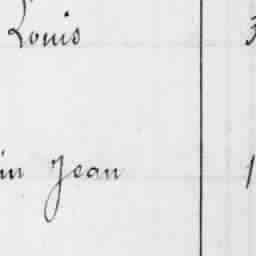 Louis 3
in Jean 1